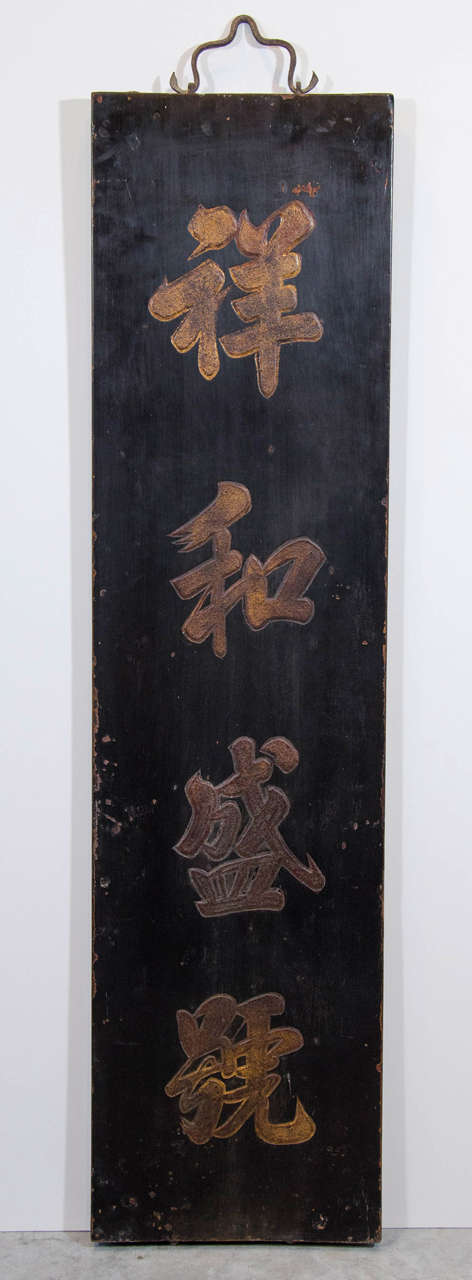 祥和盛號